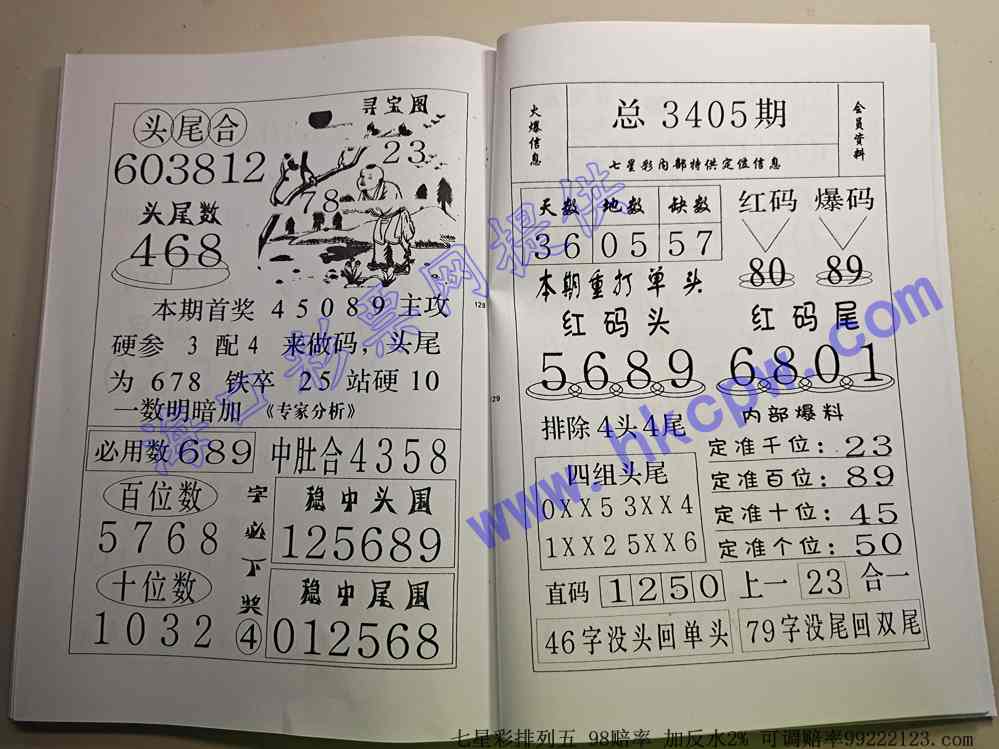 头尾合
603812
头尾数
468
寻宝图
23
78
本期首奖 45089 主攻
硬参 3 配4 来做码，头尾
为 678 铁卒 25 站硬 10
一数明暗加 《专家分析》
必用数 689
中肚合 4358
百位数
5768
十位数
1032
字必下奖④
稳中头围
125689
稳中尾围
012568
129
29
火爆信息
总 3405期
七星彩内部特供定位信息
会员资料
天数 地数 缺数
36 05 57
本期重打单头
红码 爆码
80 89
红码头
5689
红码尾
6801
排除 4头4尾
四组头尾
0XX5 3XX4
1XX2 5XX6
内部爆料
定准千位：23
定准百位：89
定准十位：45
定准个位：50
直码 1250 上一 23 合一
46字没头回单头
79字没尾回双尾
海口彩票网提供
www.hkcpw.com
七星彩排列五 98赔率 加反水2% 可调赔率99222123.com